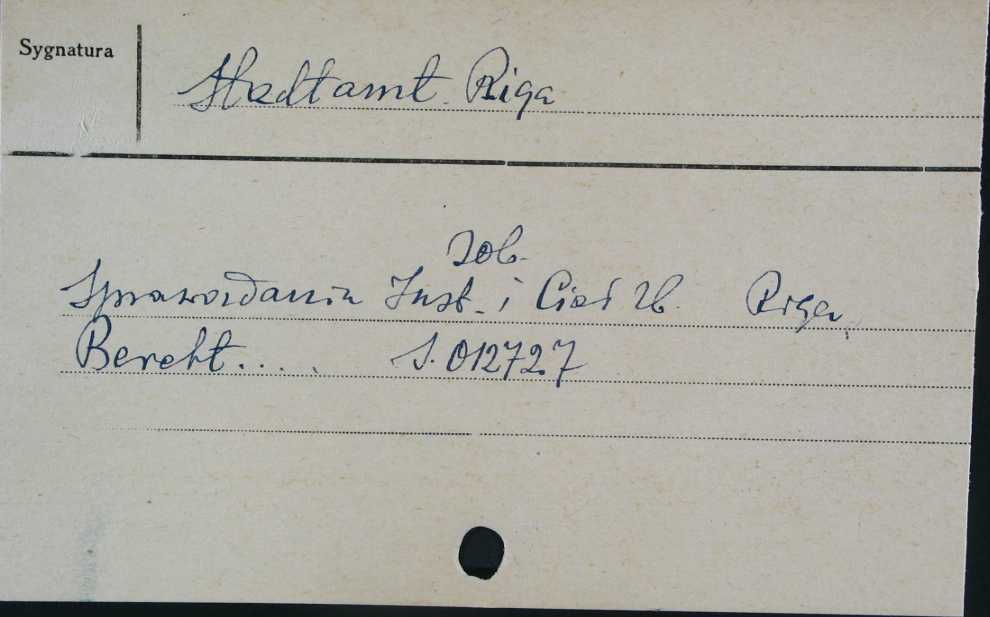 Sygnatura
Stadtamt Riga
Zob.
Sprawozdania Inst. i Ciał Zb. Riga
Bereht....  S. 012727